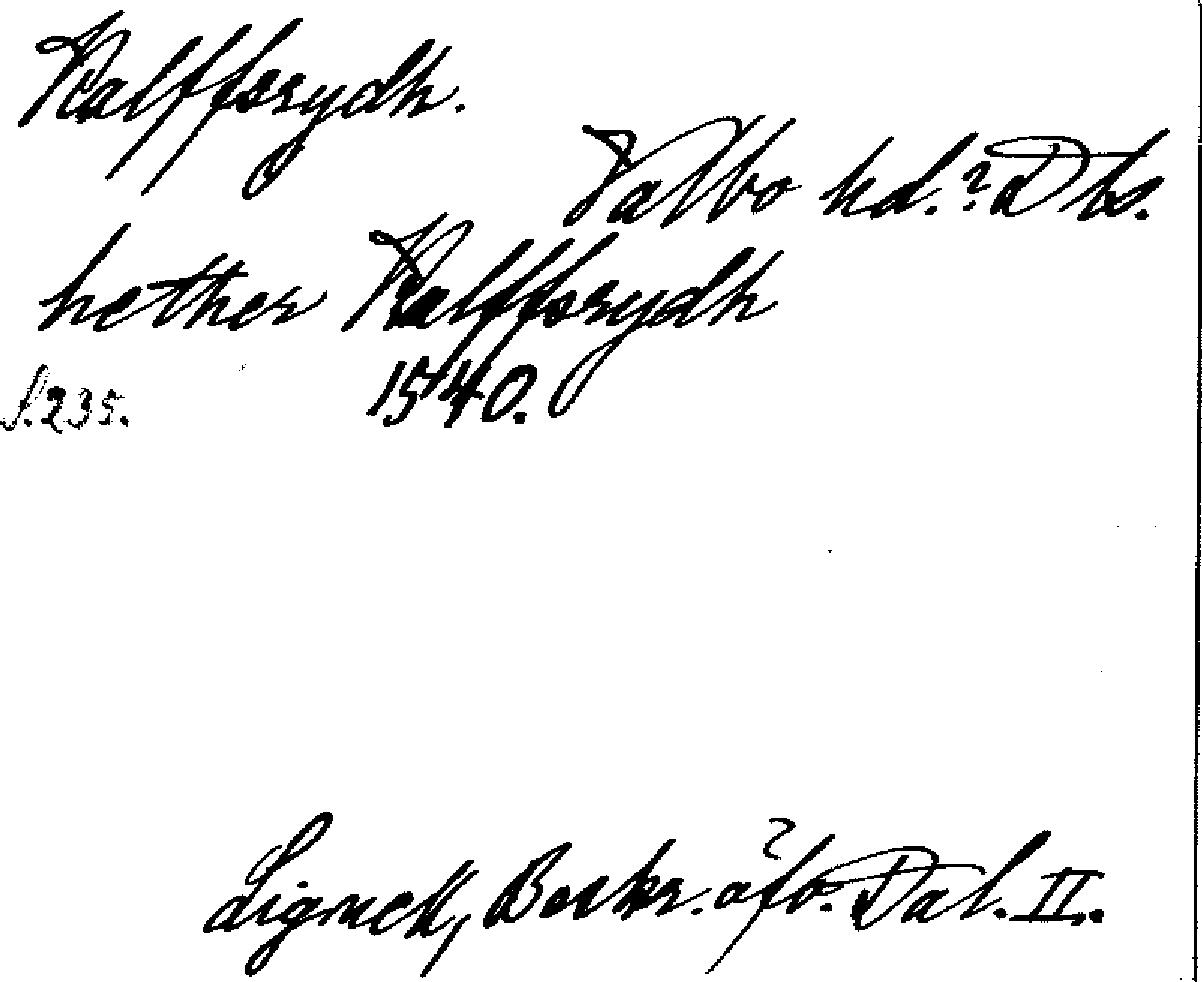 Kalffsrydh.
Valbo hd.? Dls.
hether Kalffsrydh
s. 235. 1540.
Lignell, Beskr. öfv. Dal. II.